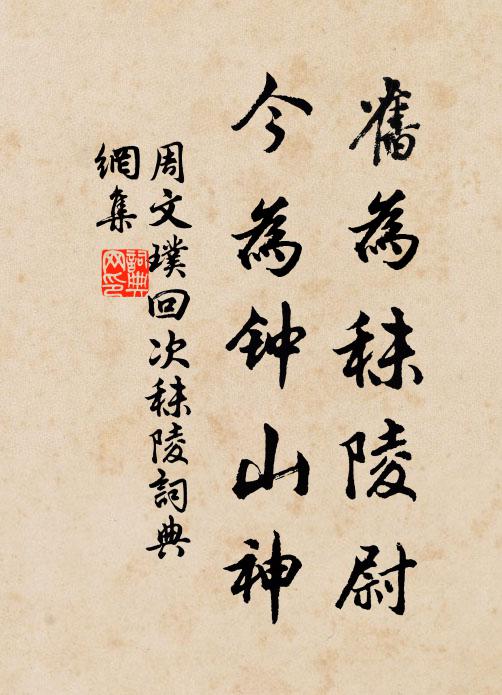 舊為秣陵尉
今為钟山神
周文璞回次秣陵詞典
網集
詞典
网印